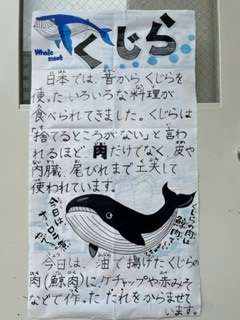 Whale meat
くじら
日本では、昔からくじらを
使ったいろいろな料理が
食べられてきました。くじらは
「捨てるところがない」と言わ
れるほど肉だけでなく、皮や
内臓、尾びれまで工夫して
使われています。
今日は、油で揚げたくじらの
肉(鯨肉)にケチャップや赤みそ
などで作ったたれをからませて
います。